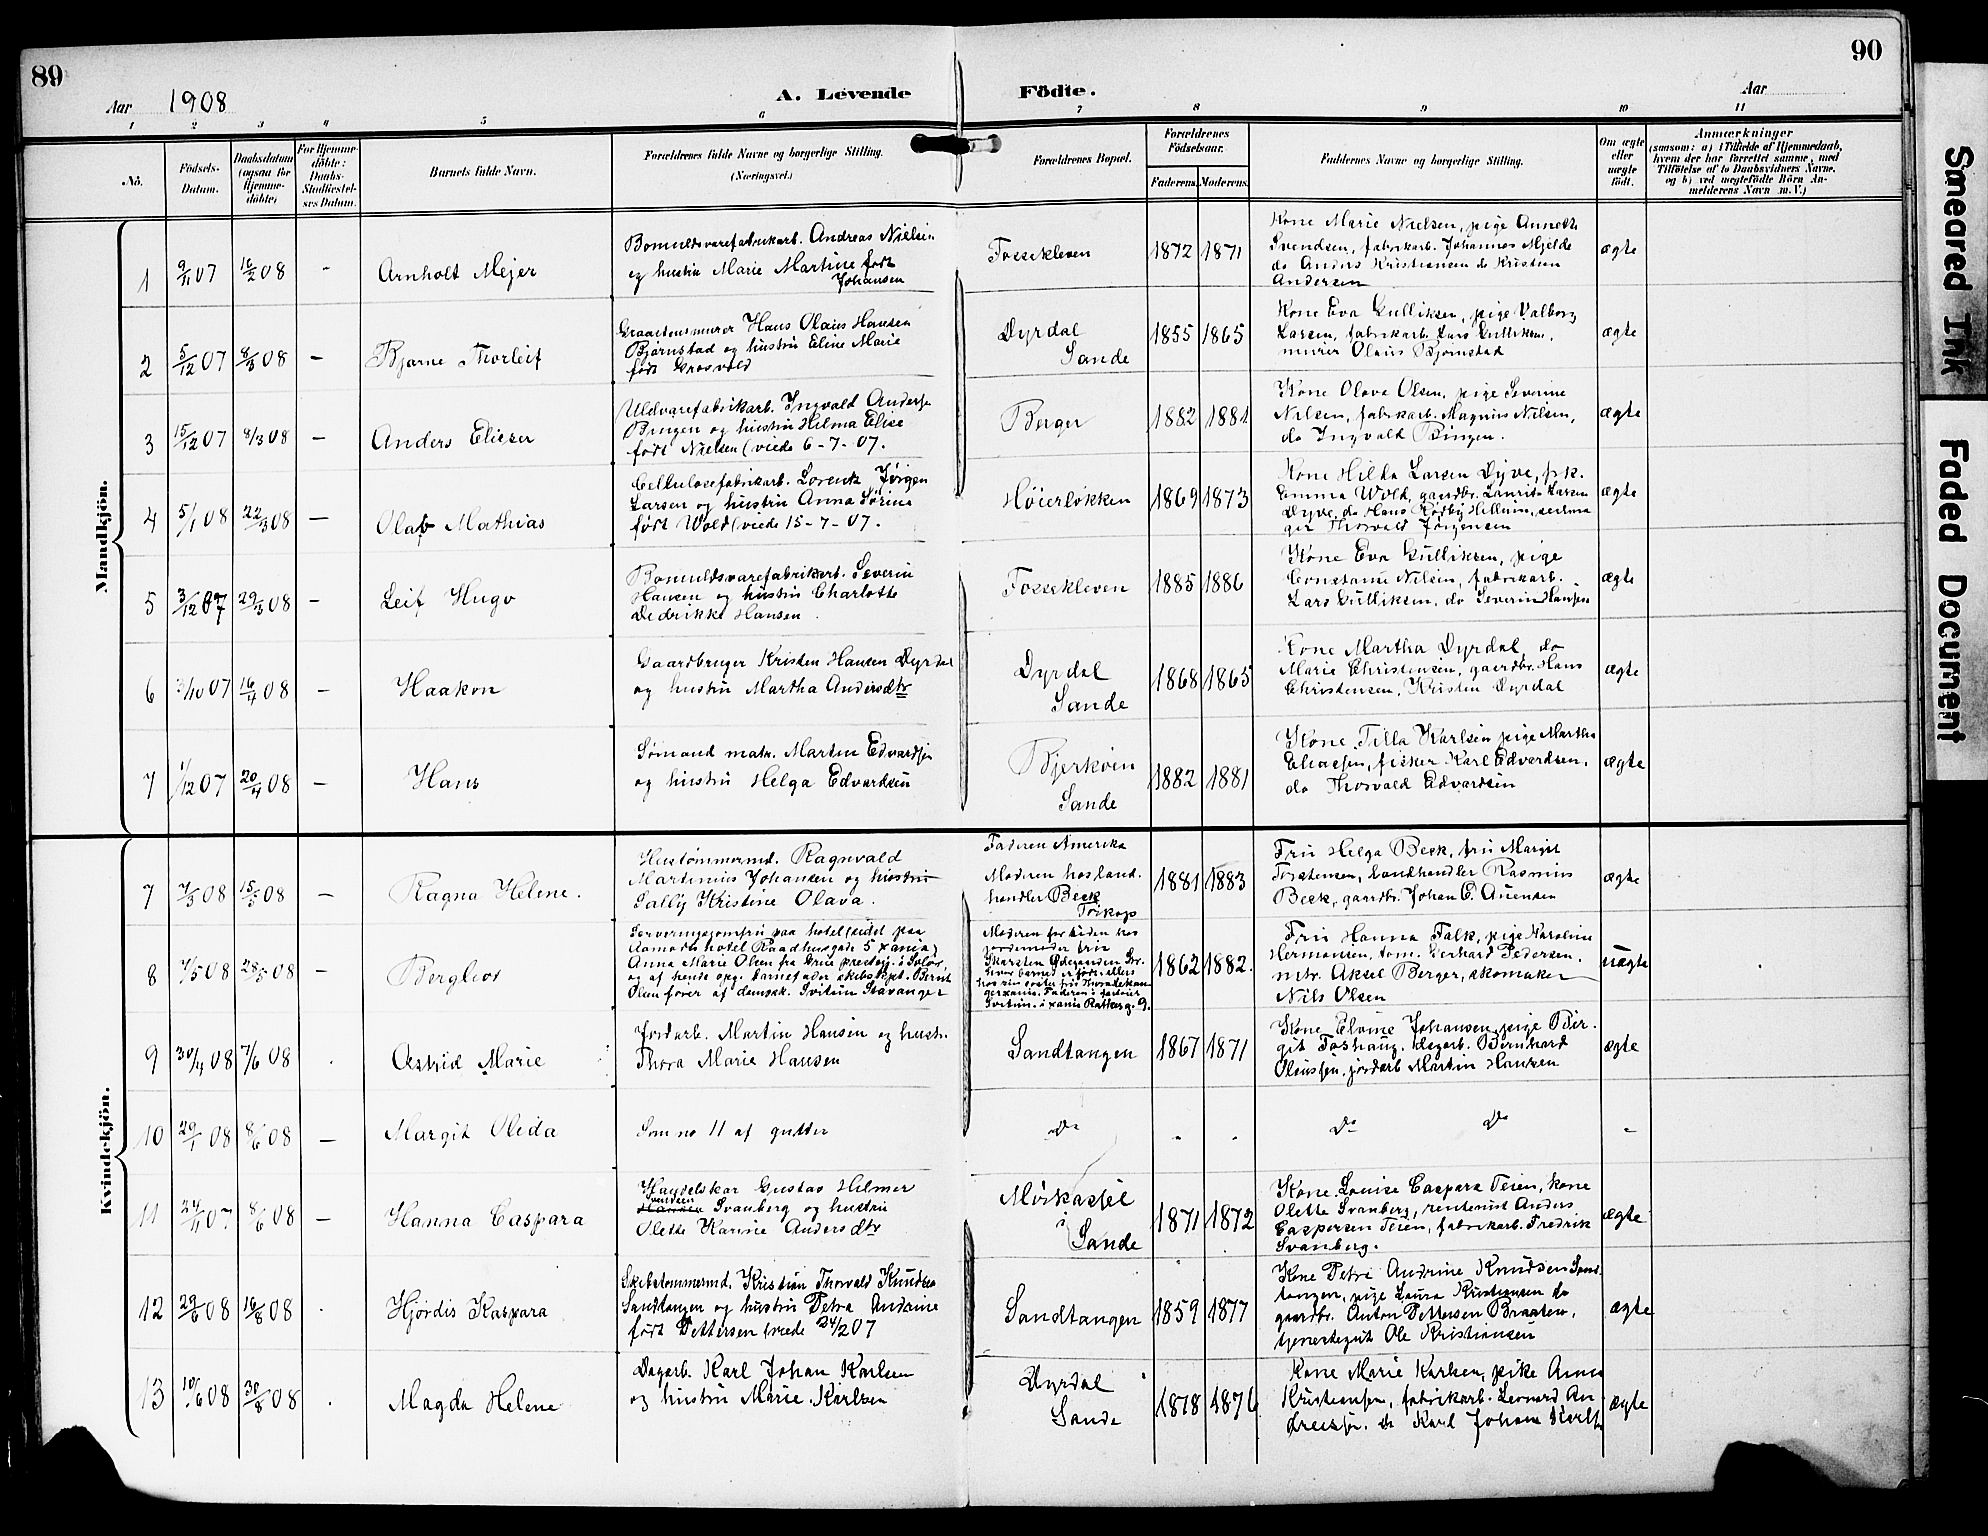 89
90
Aar 1908
A. Levende Födte.
Aar
1 2 3 4 5 6 7 8 9 10 11
No.
Födsels-
Datum.
Daabsdatum
(ogsaa for
Hjemme-
döbte)
For Hjemme-
döbte:
Daabs-
Stadfæstel-
ses Datum.
Barnets fulde Navn.
Forældrenes fulde Navne og borgerlige Stilling.
(Næringsvei.)
Forældrenes Bopæl.
Forældrenes
Födselsaar.
Faderens. Moderens.
Faddernes Navne og borgerlige Stilling.
Om ægte
eller
uægte
födt.
Anmærkninger
(saasom: a) i Tilfælde af Hjemmedaab,
hvem der har forrettet samme, med
Tilföielse af to Daabsvidners Navne,
og b) ved uægtefödte Börn An-
melderens Navn m. V.)
Mandkjön.
1 9/11 07 16/2 08 - Arnholt Mejer
Bomuldsvarefabrikarb. Andreas Nielsen
og hustru Marie Martine født
Johansen
Fossekleven
1872 1871
Kone Marie Nielsen, pige Anneth
Svendsen, fabrikarb. Johannes Mjelde
do Anders Kristiansen do Kristian
Andersen
ægte
2 5/12 07 8/3 08 - Bjarne Thorleif
Graastensmurer Hans Olaus Hansen
Bjørnstad og hustru Eline Marie
født Grosvold
Dyrdal
Sande
1855 1865
Kone Eva Gulliksen, pige Valborg
Larsen, fabrikarb. Lars Gulliksen,
murer Olaus Bjørnstad
ægte
3 15/12 07 8/3 08 - Anders Elieser
Uldvarefabrikarb. Ingvald Anderse
Bingen og hustru Hilma Elise
født Nielsen (viede 6-7-07.
Berger
1882 1881
Kone Olava Olsen, pige Severine
Nilsen, fabrikarb. Magnus Nilsen,
do Ingvald Bingen.
ægte
4 5/1 08 22/3 08 - Olaf Mathias
Cellulosefabrikarb. Lorentz Jørgen
Larsen og hustru Anna Sørine
født Wold (viede 15-7-07.
Høierløkken
1869 1873
Kone Hilda Larsen Dyve, pk.
Emma Wold, gaardbr. Laurits Larsen
Dyve, do Hans Rødby Hellum,
Thorvald Jørgensen
ægte
5 3/12 07 29/3 08 - Leif Hugo
Bomuldsvarefabrikarb. Severin
Hansen og hustru Charlotte
Dedrikke Hansen.
Fossekleven
1885 1886
Kone Eva Gulliksen, pige
Constanse Nilsen, fabrikarb.
Lars Gulliksen, do Severin Hansen
ægte
6 3/10 07 16/4 08 - Haakon
Gaardbruger Kristen Hansen Dyrdal
og hustru Martha Andersdtr
Dyrdal
Sande
1868 1865
Kone Martha Dyrdal, do
Marie Christensen, gaardbr. Hans
Christensen, Kristen Dyrdal
ægte
7 1/12 07 20/4 08 - Hans
Sømand matr. Martin Edvardsen
og hustru Helga Edvardsen
Bjerkøen
Sande
1882 1881
Kone Tilla Karlsen pige Martha
Eliassen, fisker Karl Edvardsen,
do Thorvald Edvardsen
ægte
Kvindekjön.
7 7/3 08 15/5 08 - Ragna Helene.
Hustømmermd. Ragnvald
Martinius Johansen og hustru
Sally Kristine Olava.
Faderen Amerika
Moderen hos land-
handler Beck
Toikop
1881 1883
Fru Helga Beck, fru Margit
Torstensen, landhandler Rasmus
Beck, gaardbr. Johan E. Auensen
ægte
8 7/5 08 28/5 08 - Bergliot
Serveringsjomfru paa hotel (sidst paa
Aamots hotel Raadhusgade 5 Xania)
Anna Marie Olsen fra Grue prestegj. i Solør
og af hende opg. barnefader skibskapt. Bernt
Olsen fører af dampsk. Svitun Stavanger
Moderen for tiden hos
jordemoder fru
hvor barnet er født, ellers
Svitun. i Xania Ratkesg. 9.
1862 1882.
Fru Hanna Falk, pige Karoline
Hermansen, tøm. Gerhard Pedersen,
mtr. Aksel Berger, skomaker
Nils Olsen
uægte
9 30/4 08 7/6 08 . Astrid Marie
Jordarb. Martin Hansen og hustr.
Thora Marie Hansen
Sandtangen
1867 1871
Kone Elvine Johansen, pige Bir-
git Foshaug, dagarb. Bernhard
Olaussen, jordarb Martin Hansen
ægte
10 20/1 08 8/6 08 - Margit Olida
Som no 11 af gutter
Do
" "
Do Do
"
11 24/11 07 8/6 08 - Hanna Caspara
Handelskar Gustav Hilmer
Svanberg og hustru
Olette Hannie Andersdtr
Mørkassel
i Sande
1871 1872
Kone Louise Caspara Teien, kone
Olette Svanberg, rentenist Anders
Caspersen Teien, fabrikarb. Fredrik
Svanberg.
ægte
12 29/6 08 16/8 08 . Hjørdis Kaspara
Skibstømmermd. Kristian Thorvald Knudsen
Sandtangen og hustru Petra Andrine
født Pettersen (viede 24/2 07
Sandtangen
1859 1877
Kone Petra Andrine Knudsen Sand-
tangen, pige Laura Kristiansen do
gaardbr. Anton Pettersen Braaten,
tjenestegut Ole Kristiansen
ægte
13 10/6 08 30/8 08 . Magda Helene
Dagarb. Karl Johan Karlsen
og hustru Marie Karlsen
Dyrdal
Sande
1878 1876
Kone Marie Karlsen, pike Anna
Kristiansen, fabrikarb. Leonard An-
dreassen, do Karl Johan Karls
ægte
Smeared Ink
Faded Document